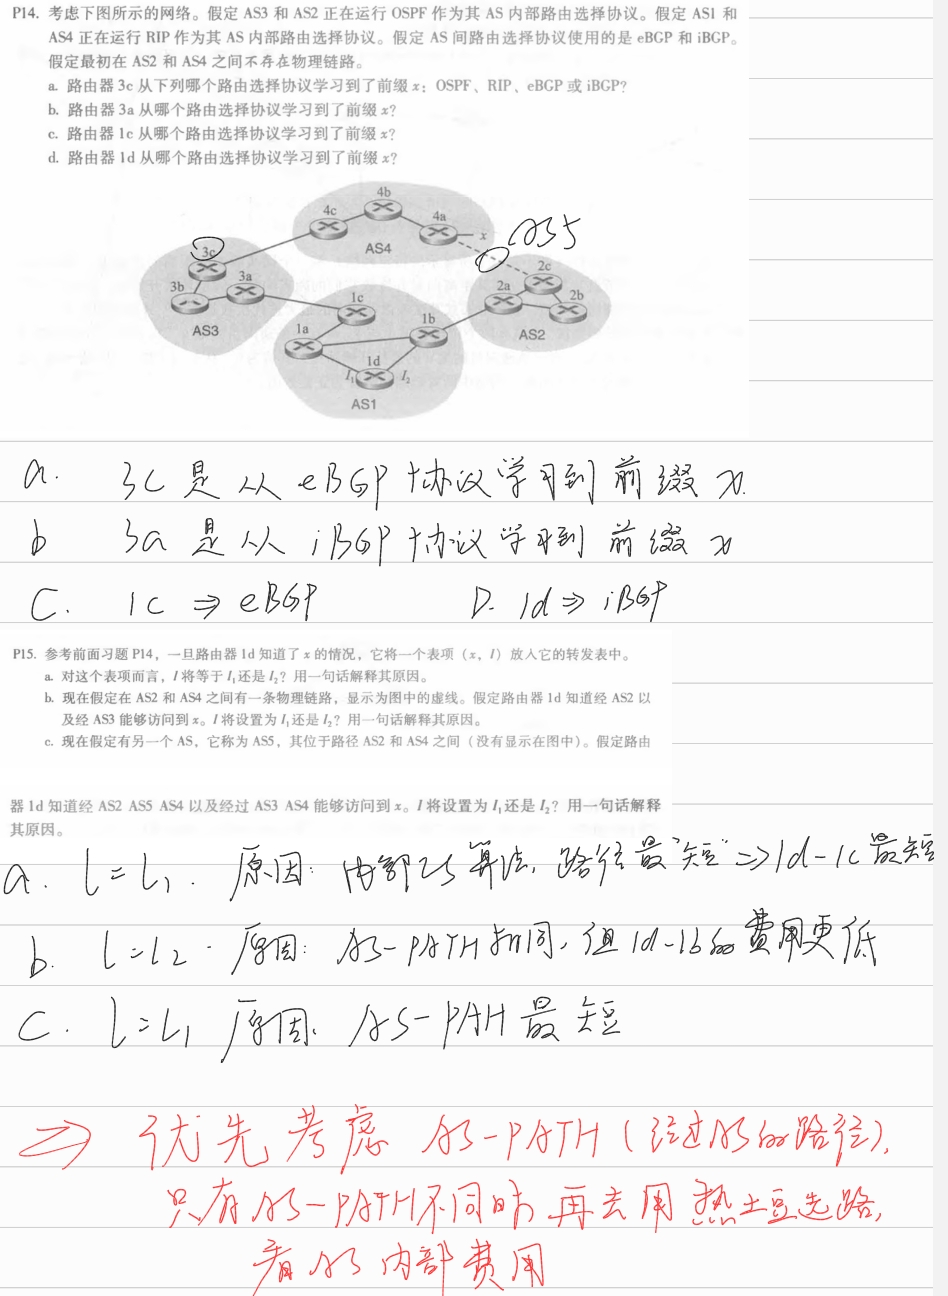 P14. 考虑下图所示的网络。假定 AS3 和 AS2 正在运行 OSPF 作为其 AS 内部路由选择协议。假定 AS1 和
AS4 正在运行 RIP 作为其 AS 内部路由选择协议。假定 AS 间路由选择协议使用的是 eBGP 和 iBGP。
假定最初在 AS2 和 AS4 之间不存在物理链路。
a. 路由器 3c 从下列哪个路由选择协议学习到了前缀 x：OSPF、RIP、eBGP 或 iBGP?
b. 路由器 3a 从哪个路由选择协议学习到了前缀 x?
c. 路由器 1c 从哪个路由选择协议学习到了前缀 x?
d. 路由器 1d 从哪个路由选择协议学习到了前缀 x?
4b
4c
4a
x
AS5
AS4
3c
2c
3b
3a
2a
2b
1c
AS3
1a
1b
AS2
1d
I₁
I₂
AS1
a. 3c 是从 eBGP 协议学习到前缀 x.
b 3a 是从 iBGP 协议学习到前缀 x
C. 1c ⇒ eBGP D. 1d ⇒ iBGP
P15. 参考前面习题 P14，一旦路由器 1d 知道了 x 的情况，它将一个表项（x，I）放入它的转发表中。
a. 对这个表项而言，I 将等于 I₁还是 I₂? 用一句话解释其原因。
b. 现在假定在 AS2 和 AS4 之间有一条物理链路，显示为图中的虚线。假定路由器 1d 知道经 AS2 以
及经 AS3 能够访问到 x。I 将设置为 I₁还是 I₂? 用一句话解释其原因。
c. 现在假定有另一个 AS，它称为 AS5，其位于路径 AS2 和 AS4 之间（没有显示在图中）。假定路由
器 1d 知道经 AS2 AS5 AS4 以及经过 AS3 AS4 能够访问到 x。I 将设置为 I₁还是 I₂? 用一句话解释
其原因。
a. l = l₁. 原因: 内部LS算法, 路径最"短" ⇒ 1d-1c 最短
b. l = l2. 原因: AS-PATH 相同, 但 1d-1b的费用更低
C. l = l₁ 原因: AS-PAH 最短
⇒ 优先考虑 AS-PATH (经过AS的路径),
只有 AS-PATH不同时 再去用 热土豆选路,
看 AS 内部费用